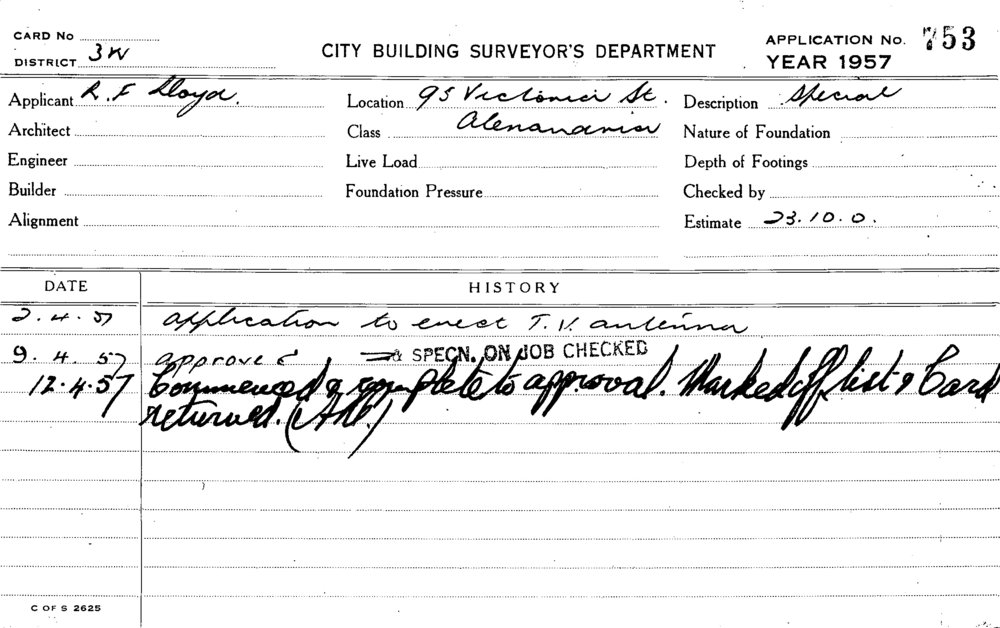 CARD No
DISTRICT 3W
CITY BUILDING SURVEYOR'S DEPARTMENT
APPLICATION No. 753
YEAR 1957
Applicant R. F Lloyd. Location 95 Victoria St. Description Special
Architect Class Alexandria Nature of Foundation
Engineer Live Load Depth of Footings
Builder Foundation Pressure Checked by
Alignment Estimate 23.10.0.
DATE HISTORY
2.4.57 application to erect T.V. antenna
9.4.57 approved & SPECN. ON JOB CHECKED
12.4.57 Commenced & complete to approval. Marked off list & Card
returned.
C OF S 2625